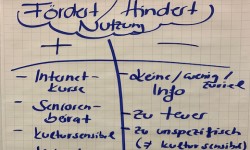 Fördert / Hindert
Nutzung
+ –
- Internet-
kurse
- Senioren-
beirat
- kultursensible
- keine / wenig /
Info zurück
- zu teuer
- zu unspezifisch
(≠ kultursensibel